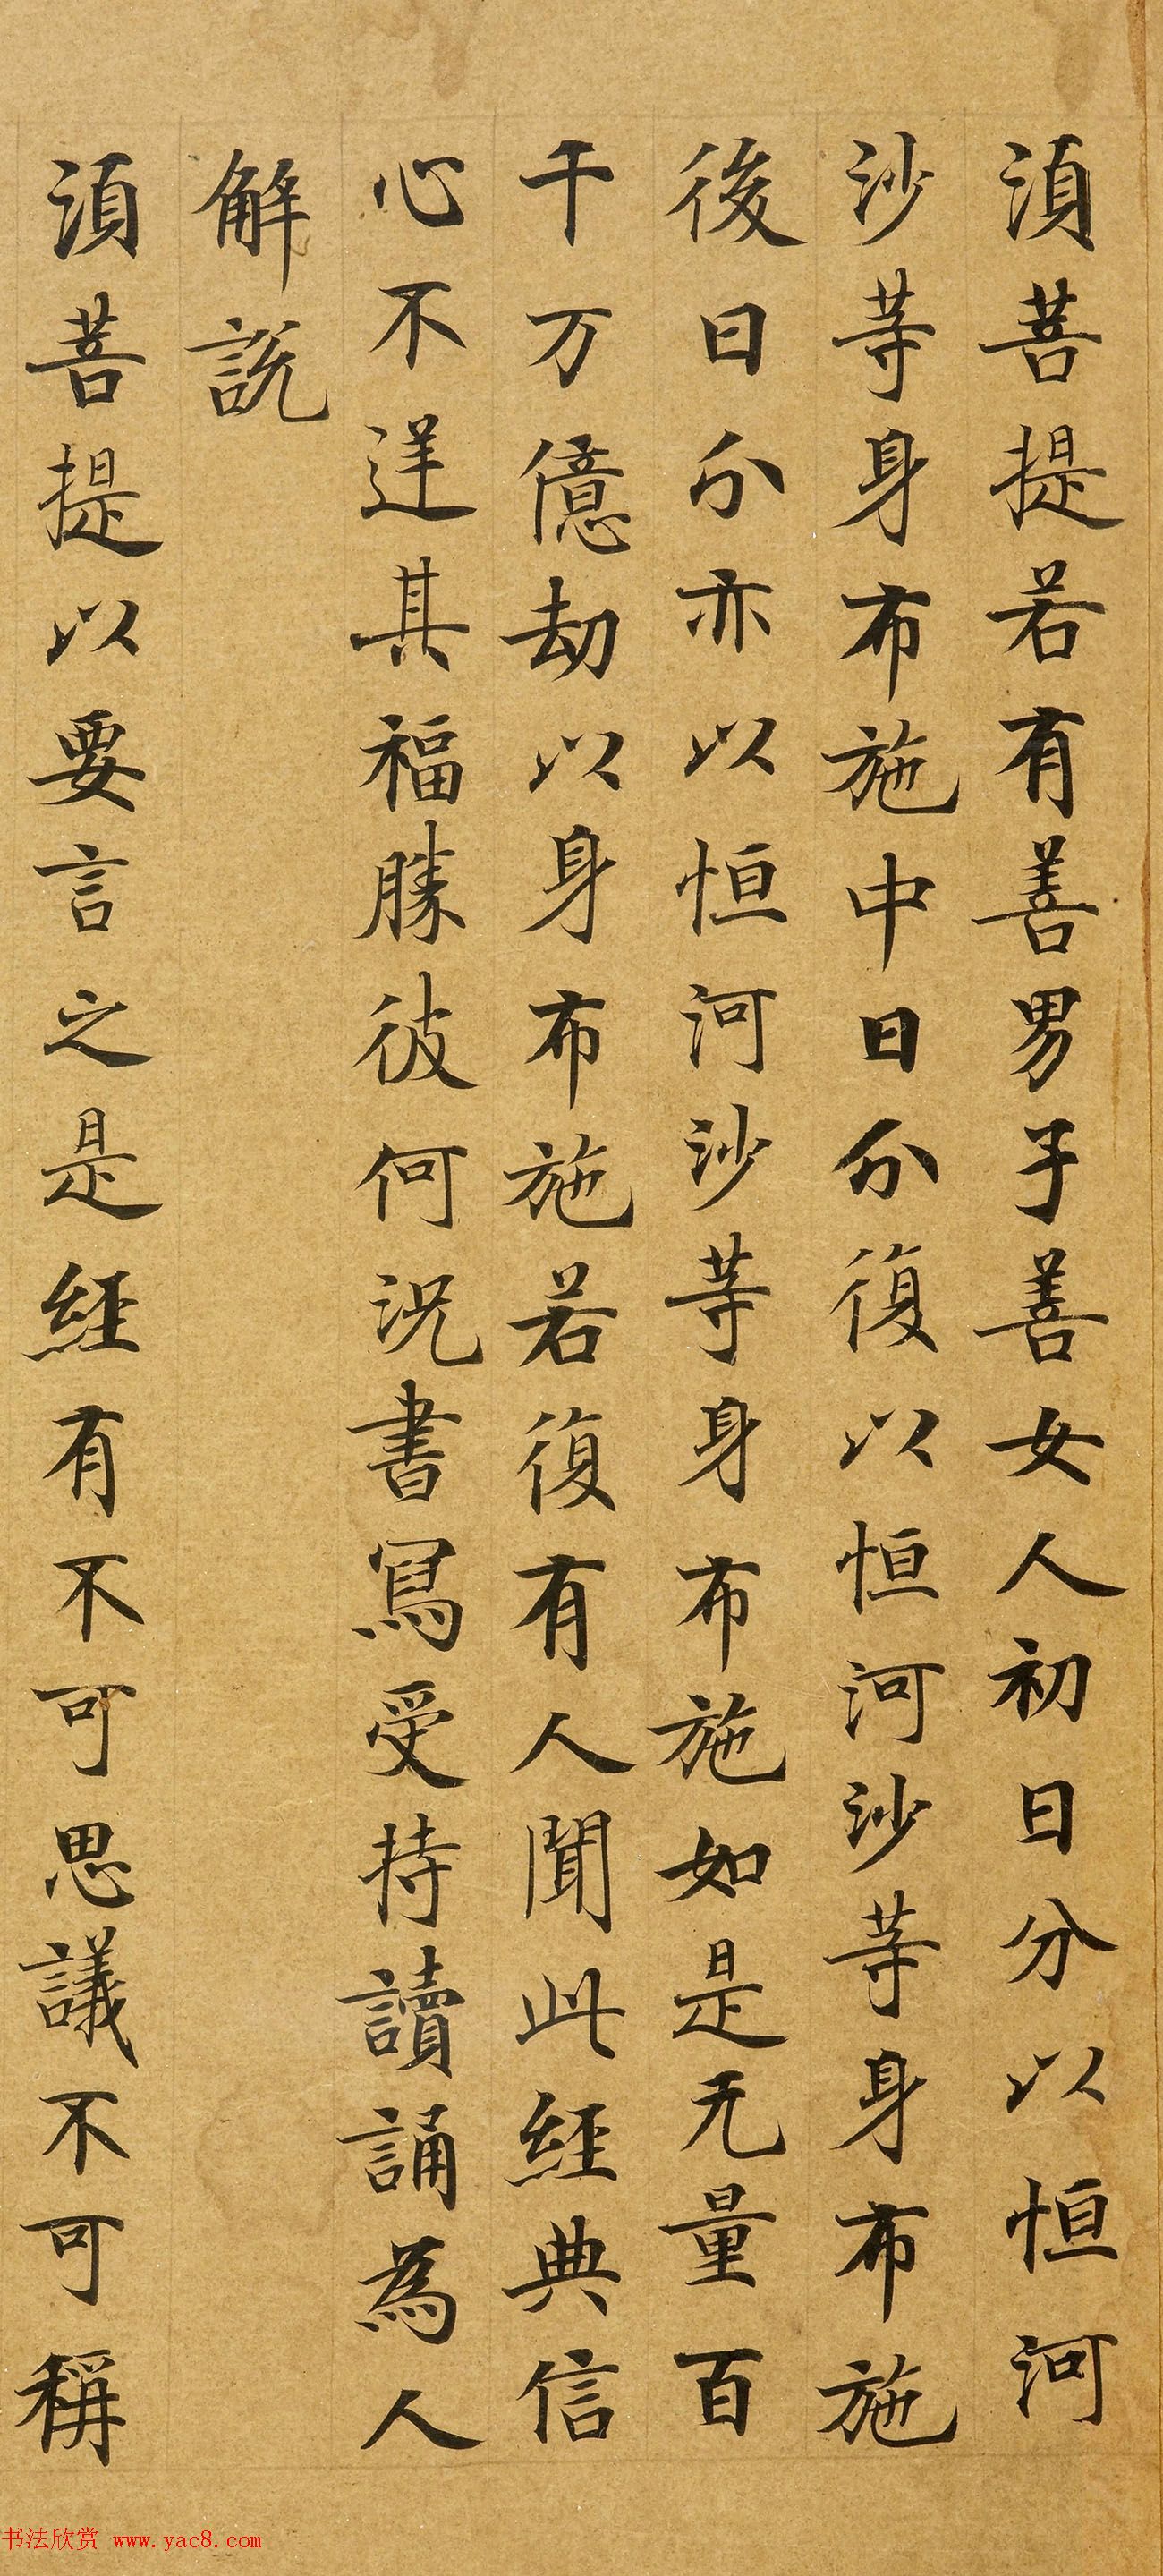 湏菩提若有善男子善女人初日分以恒河
沙等身布施中日分復以恒河沙等身布施
後日分亦以恒河沙等身布施如是无量百
千万億劫以身布施若復有人聞此經典信
心不逆其福勝彼何況書寫受持讀誦為人
解說
湏菩提以要言之是經有不可思議不可稱
书法欣赏 www.yac8.com